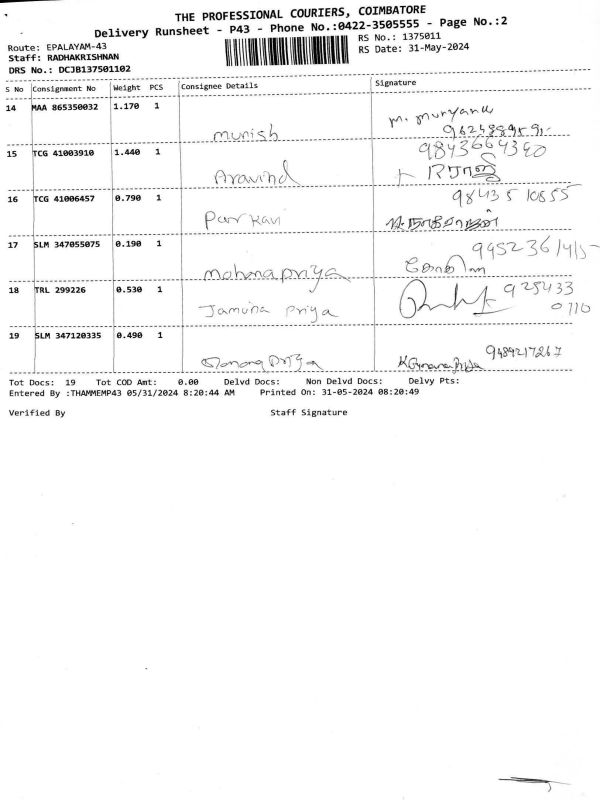 THE PROFESSIONAL COURIERS, COIMBATORE
Delivery Runsheet - P43 - Phone No.:0422-3505555 - Page No.:2
Route: EPALAYAM-43
RS No.: 1375011
Staff: RADHAKRISHNAN
RS Date: 31-May-2024
DRS No.: DCJB137501102
S No Consignment No Weight PCS Consignee Details Signature
14 MAA 865350032 1.170 1
munish
15 TCG 41003910 1.440 1
9843664340
Aravind
16 TCG 41006457 0.790 1
98435 10855
17 SLM 347055075 0.190 1
mohanapriya
18 TRL 299226 0.530 1
925433
0110
Jamuna Priya
19 SLM 347120335 0.490 1
9489217267
Tot Docs: 19 Tot COD Amt: 0.00 Delvd Docs: Non Delvd Docs: Delvy Pts:
Entered By :THAMMEMP43 05/31/2024 8:20:44 AM Printed On: 31-05-2024 08:20:49
Verified By Staff Signature